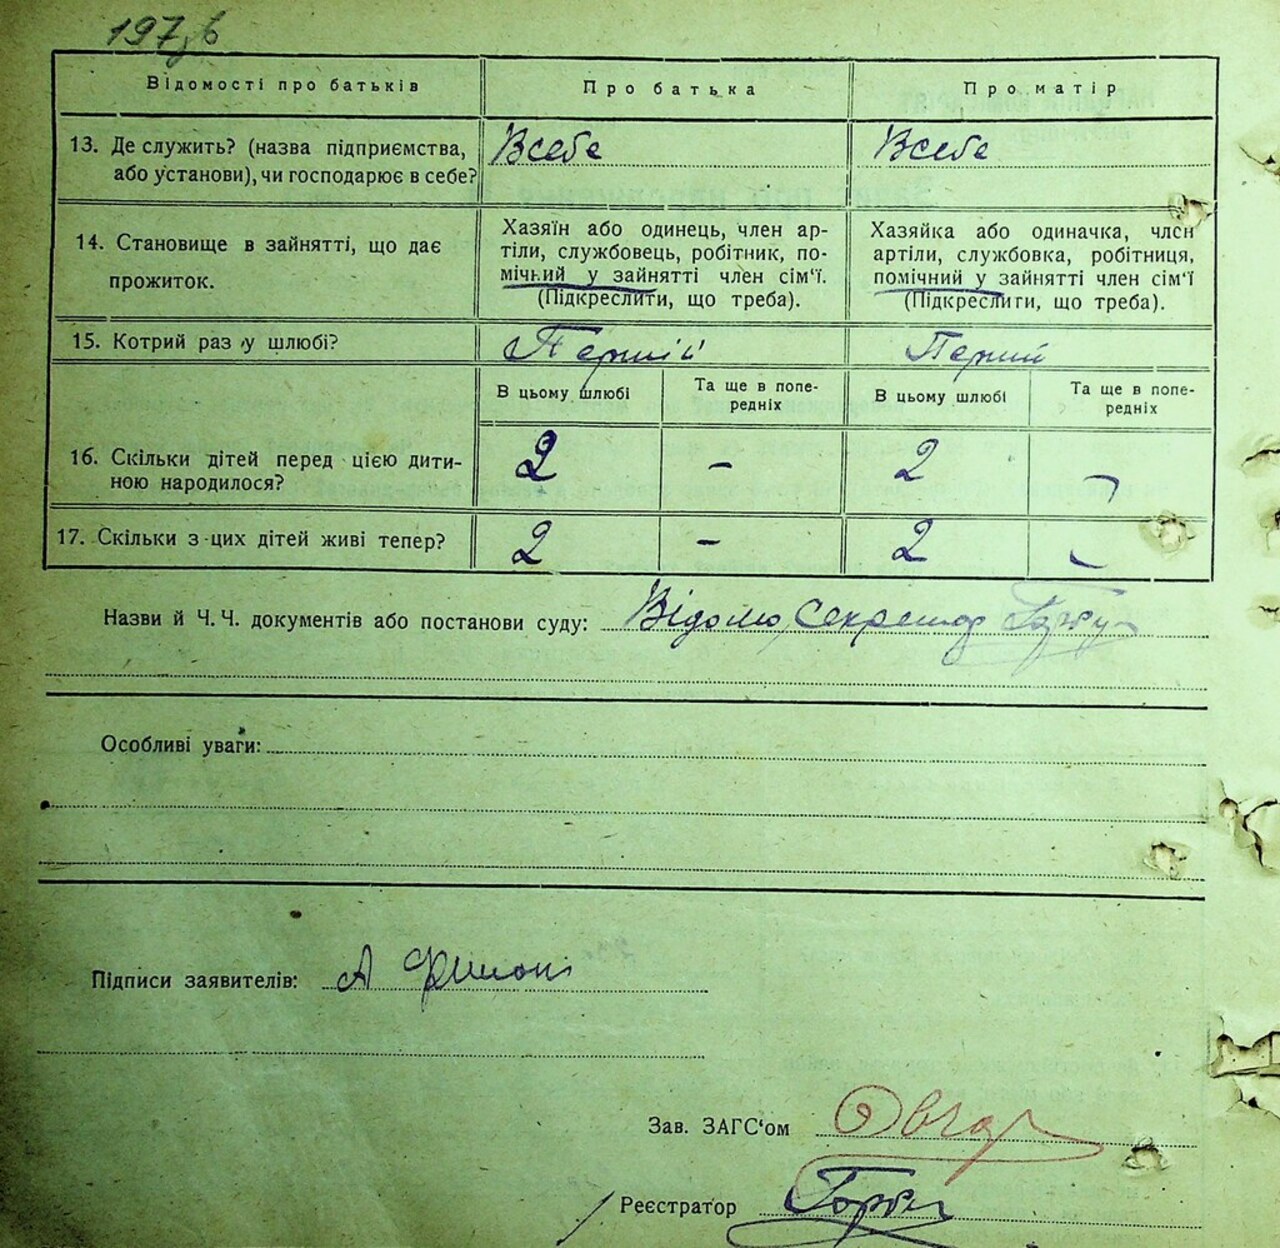 197 зв
Відомості про батьків Про батька Про матір
13. Де служить? (назва підприємства, або установи), чи господарює в себе? Всебе Всебе
14. Становище в зайнятті, що дає прожиток.
Хазяїн або одинець, член ар-
тіли, службовець, робітник, по-
мічний у зайнятті член сім‘ї.
(Підкреслити, що треба).
Хазяйка або одиначка, член
артіли, службовка, робітниця,
помічний у зайнятті член сім‘ї
(Підкреслити, що треба).
15. Котрий раз у шлюбі? Першій Перший
В цьому шлюбі Та ще в попе-
редніх В цьому шлюбі Та ще в попе-
редніх
16. Скільки дітей перед цією дити-
ною народилося? 2 - 2 -
17. Скільки з цих дітей живі тепер? 2 - 2 -
Назви й Ч. Ч. документів або постанови суду: Відомо, Секретар
Особливі уваги:
Підписи заявителів: А
Зав. ЗАГС‘ом
Реєстратор